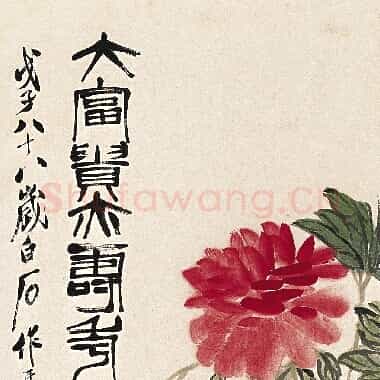 大富貴亦壽考
戊子八十八歲白石作
Shufawang.Cn